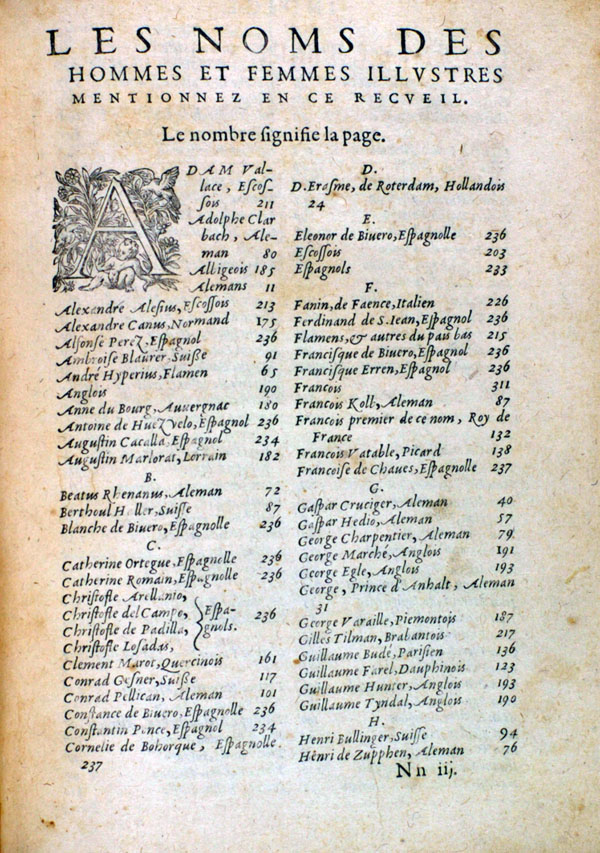 LES NOMS DES
HOMMES ET FEMMES ILLVSTRES
MENTIONNEZ EN CE RECVEIL.
Le nombre signifie la page.
ADAM Val-
lace, Escos-
sois 211
Adolphe Clar
bach, Ale-
man 80
Albigeois 185
Alemans 11
Alexandre Alesius, Escossois 213
Alexandre Canus, Normand 175
Alfonse Perez, Espagnol 236
Ambroise Blaurer, Suisse 91
André Hyperius, Flamen 65
Anglois 190
Anne du Bourg, Auvergnac 180
Antoine de Huezvelo, Espagnol 236
Augustin Cacalla, Espagnol 234
Augustin Marlorat, Lorrain 182
B.
Beatus Rhenanus, Aleman 72
Berthoul Haller, Suisse 87
Blanche de Bivero, Espagnolle 236
C.
Catherine Ortegue, Espagnolle 236
Catherine Romain, Espagnolle 236
Christofle Arellanio,
Christofle del Campo,
Christofle de Padilla,
Christofle Losadas,
Espa-
gnols. 236
Clement Marot, Quercinois 161
Conrad Gesner, Suisse 117
Conrad Pellican, Aleman 101
Constance de Bivero, Espagnolle 236
Constantin Ponce, Espagnol 234
Cornelie de Bohorque, Espagnolle
237
D.
D. Erasme, de Roterdam, Hollandois
24
E.
Eleonor de Bivero, Espagnolle 236
Escossois 203
Espagnols 233
F.
Fanin, de Faence, Italien 226
Ferdinand de S. Iean, Espagnol 236
Flamens, & autres du pais bas 215
Francisque de Bivero, Espagnol 236
Francisque Erren, Espagnol 236
Francois 311
Francois Koll, Aleman 87
Francois premier de ce nom, Roy de
France 132
Francois Vatable, Picard 138
Francoise de Chaves, Espagnolle 237
G.
Gaspar Cruciger, Aleman 40
Gaspar Hedio, Aleman 57
George Charpentier, Aleman 79
George Marché, Anglois 191
George Egle, Anglois 193
George, Prince d'Anhalt, Aleman
31
George Varaille, Piemontois 187
Gilles Tilman, Brabantois 217
Guillaume Budé, Parisien 136
Guillaume Farel, Dauphinois 123
Guillaume Hunter, Anglois 193
Guillaume Tyndal, Anglois 190
H.
Henri Bullinger, Suisse 94
Hēnri de Zupphen, Aleman 76
Nn iij.